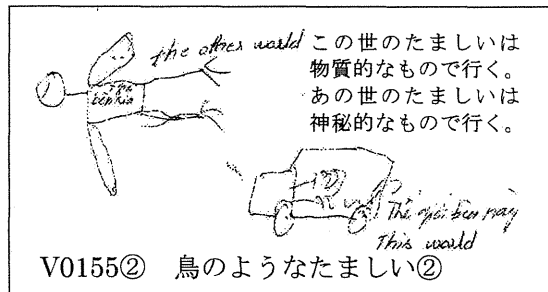 the other world
この世のたましいは
物質的なもので行く。
あの世のたましいは
神秘的なもので行く。
The
This world
V0155② 鳥のようなたましい②